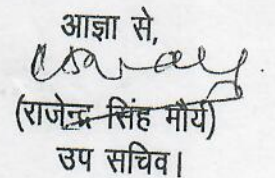 आज्ञा से,
(राजेन्द्र सिंह मौर्य)
उप सचिव।